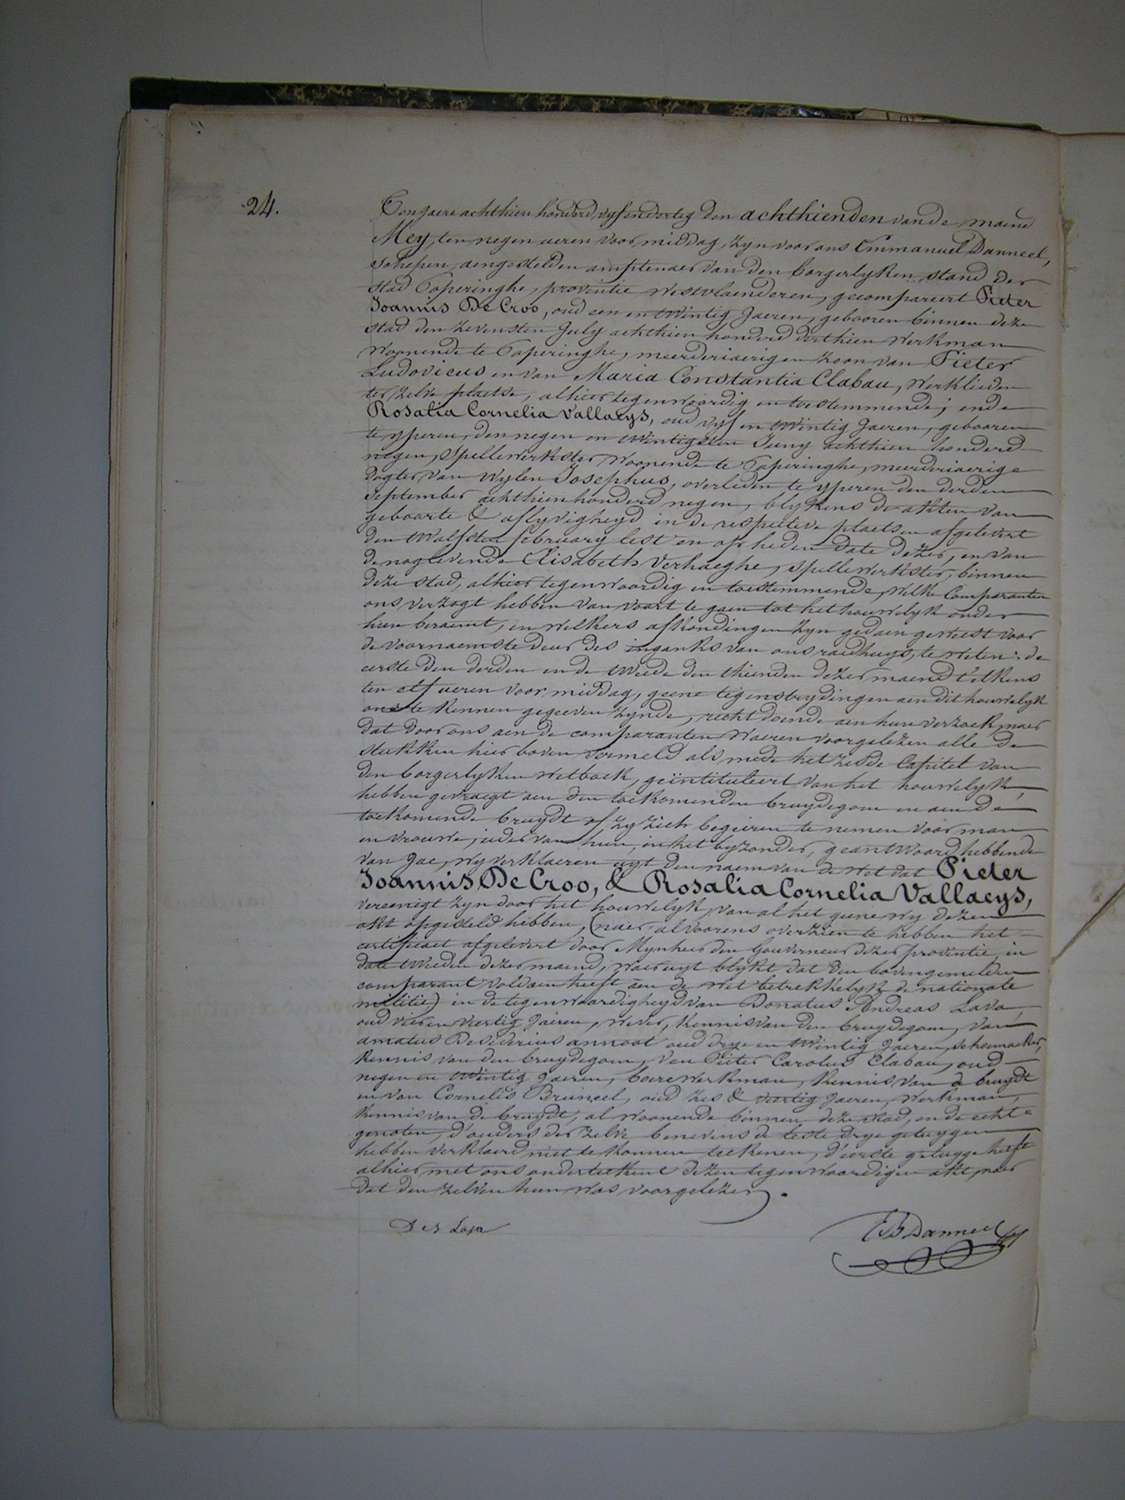 24.
Ten jaere achthien honderd vyf en dertig den achthienden van de maend
Mey, ten negen ueren voormiddag, zyn voor ons Emmanuel Danneel,
Schepen, aengestelden amptenaer van den borgerlyken stand der
stad Poperinghe, provintie westvlaenderen, gecompareert Pieter
Joannis De Croo, oud een en twintig Jaeren, gebooren binnen deze
stad den zevensten July achthien honderd derthien werkman
woonende te Poperinghe, meerderjaerigen zoon van Pieter
Ludovicus en van Maria Constantia Clabau, werklieden
ter zelve plaetse, alhier tegenwoordig en toestemmende; ende
Rosalia Cornelia Vallaeys, oud vyf en twintig Jaeren, gebooren
te yperen, den negen en twintigsten Juny achthien honderd
negen, Spellewerkster, woonende te Poperinghe, meerderjaerige
dogter van wylen Josephus, overleden te yperen den derden
September achthien honderd negen, blykens de akten van
geboorte & aflyvigheyd in de respective plaetsen afgelevert
den twalfsten february lest en op heden date dezer, en van
de naglevende Elisabeth Verhaeghe, spellewerkster, binnen
deze stad, alhier tegenwoordig en toestemmende, welke Comparanten
ons verzogt hebben van voort te gaen tot het houwelyk onder
hun beraemt, en welkers afkondingen zyn gedaen geweest voor
de voornaemste deur des inganks van ons raedhuys, te weten: de
eerste den derden en de tweede den thienden dezer maend t'elkens
ten elf ueren voor middag, geene tegenstrydingen aen dit houwelyk
ons te kennen gegeeven zynde, recht doende aen hun verzoek naer
dat door ons aen de comparanten waeren voorgelezen alle de
stukken hier boven vermeld als mede het zesde Capitel van
den borgerlyken wetboek, geïntituleert van het houwelyk,
hebben gevraegt aen den toekomenden bruydegom en aen de
toekomende bruydt of zy zich begeiren te nemen voor man
en vrouwe, ieder van hun, in het byzonder, geantwoord hebbende
van Jae, wy verklaeren uyt den naem van de wet dat Pieter
Joannis De Croo, & Rosalia Cornelia Vallaeys,
vereenigt zyn door het houwelyk, van al het gene wy dezen
akt opgesteld hebben, (naer alvoorens overzien te hebben het
certificaet afgelevert door Mynheer den Gouverneur dezer provintie, in
date tweeden dezer maend, waer uyt blykt dat den bovengemelden
comparant voldaen heeft aen de wet betrekkelyk de nationale
militie) in de tegenwoordigheyd van Donatus Andreas Lava,
oud vier en veertig Jaeren, wever, kennis van den bruydegom, van
amatus Desiderius annoot oud dryeen twintig Jaeren, schoenmaeker,
kennis van den bruydegom, van Pieter Carolus Clabau, oud
negen en twintig Jaeren, boerewerkman, kennis van de bruydt
en van Cornelis Bruneel, oud zes & veertig Jaeren, werkman,
kennis van de bruydt, al woonende binnen deze stad, en de echt=
genoten, d'ouders der zelve benevens de leste drye getuygen
hebben verklaerd niet te konnen teekenen, d'eerste getuyge heeft
alhier met ons onderteekent dezen tegenwoordigen akt, naer
dat den zelven hun was voorgelezen.
EB Danneel